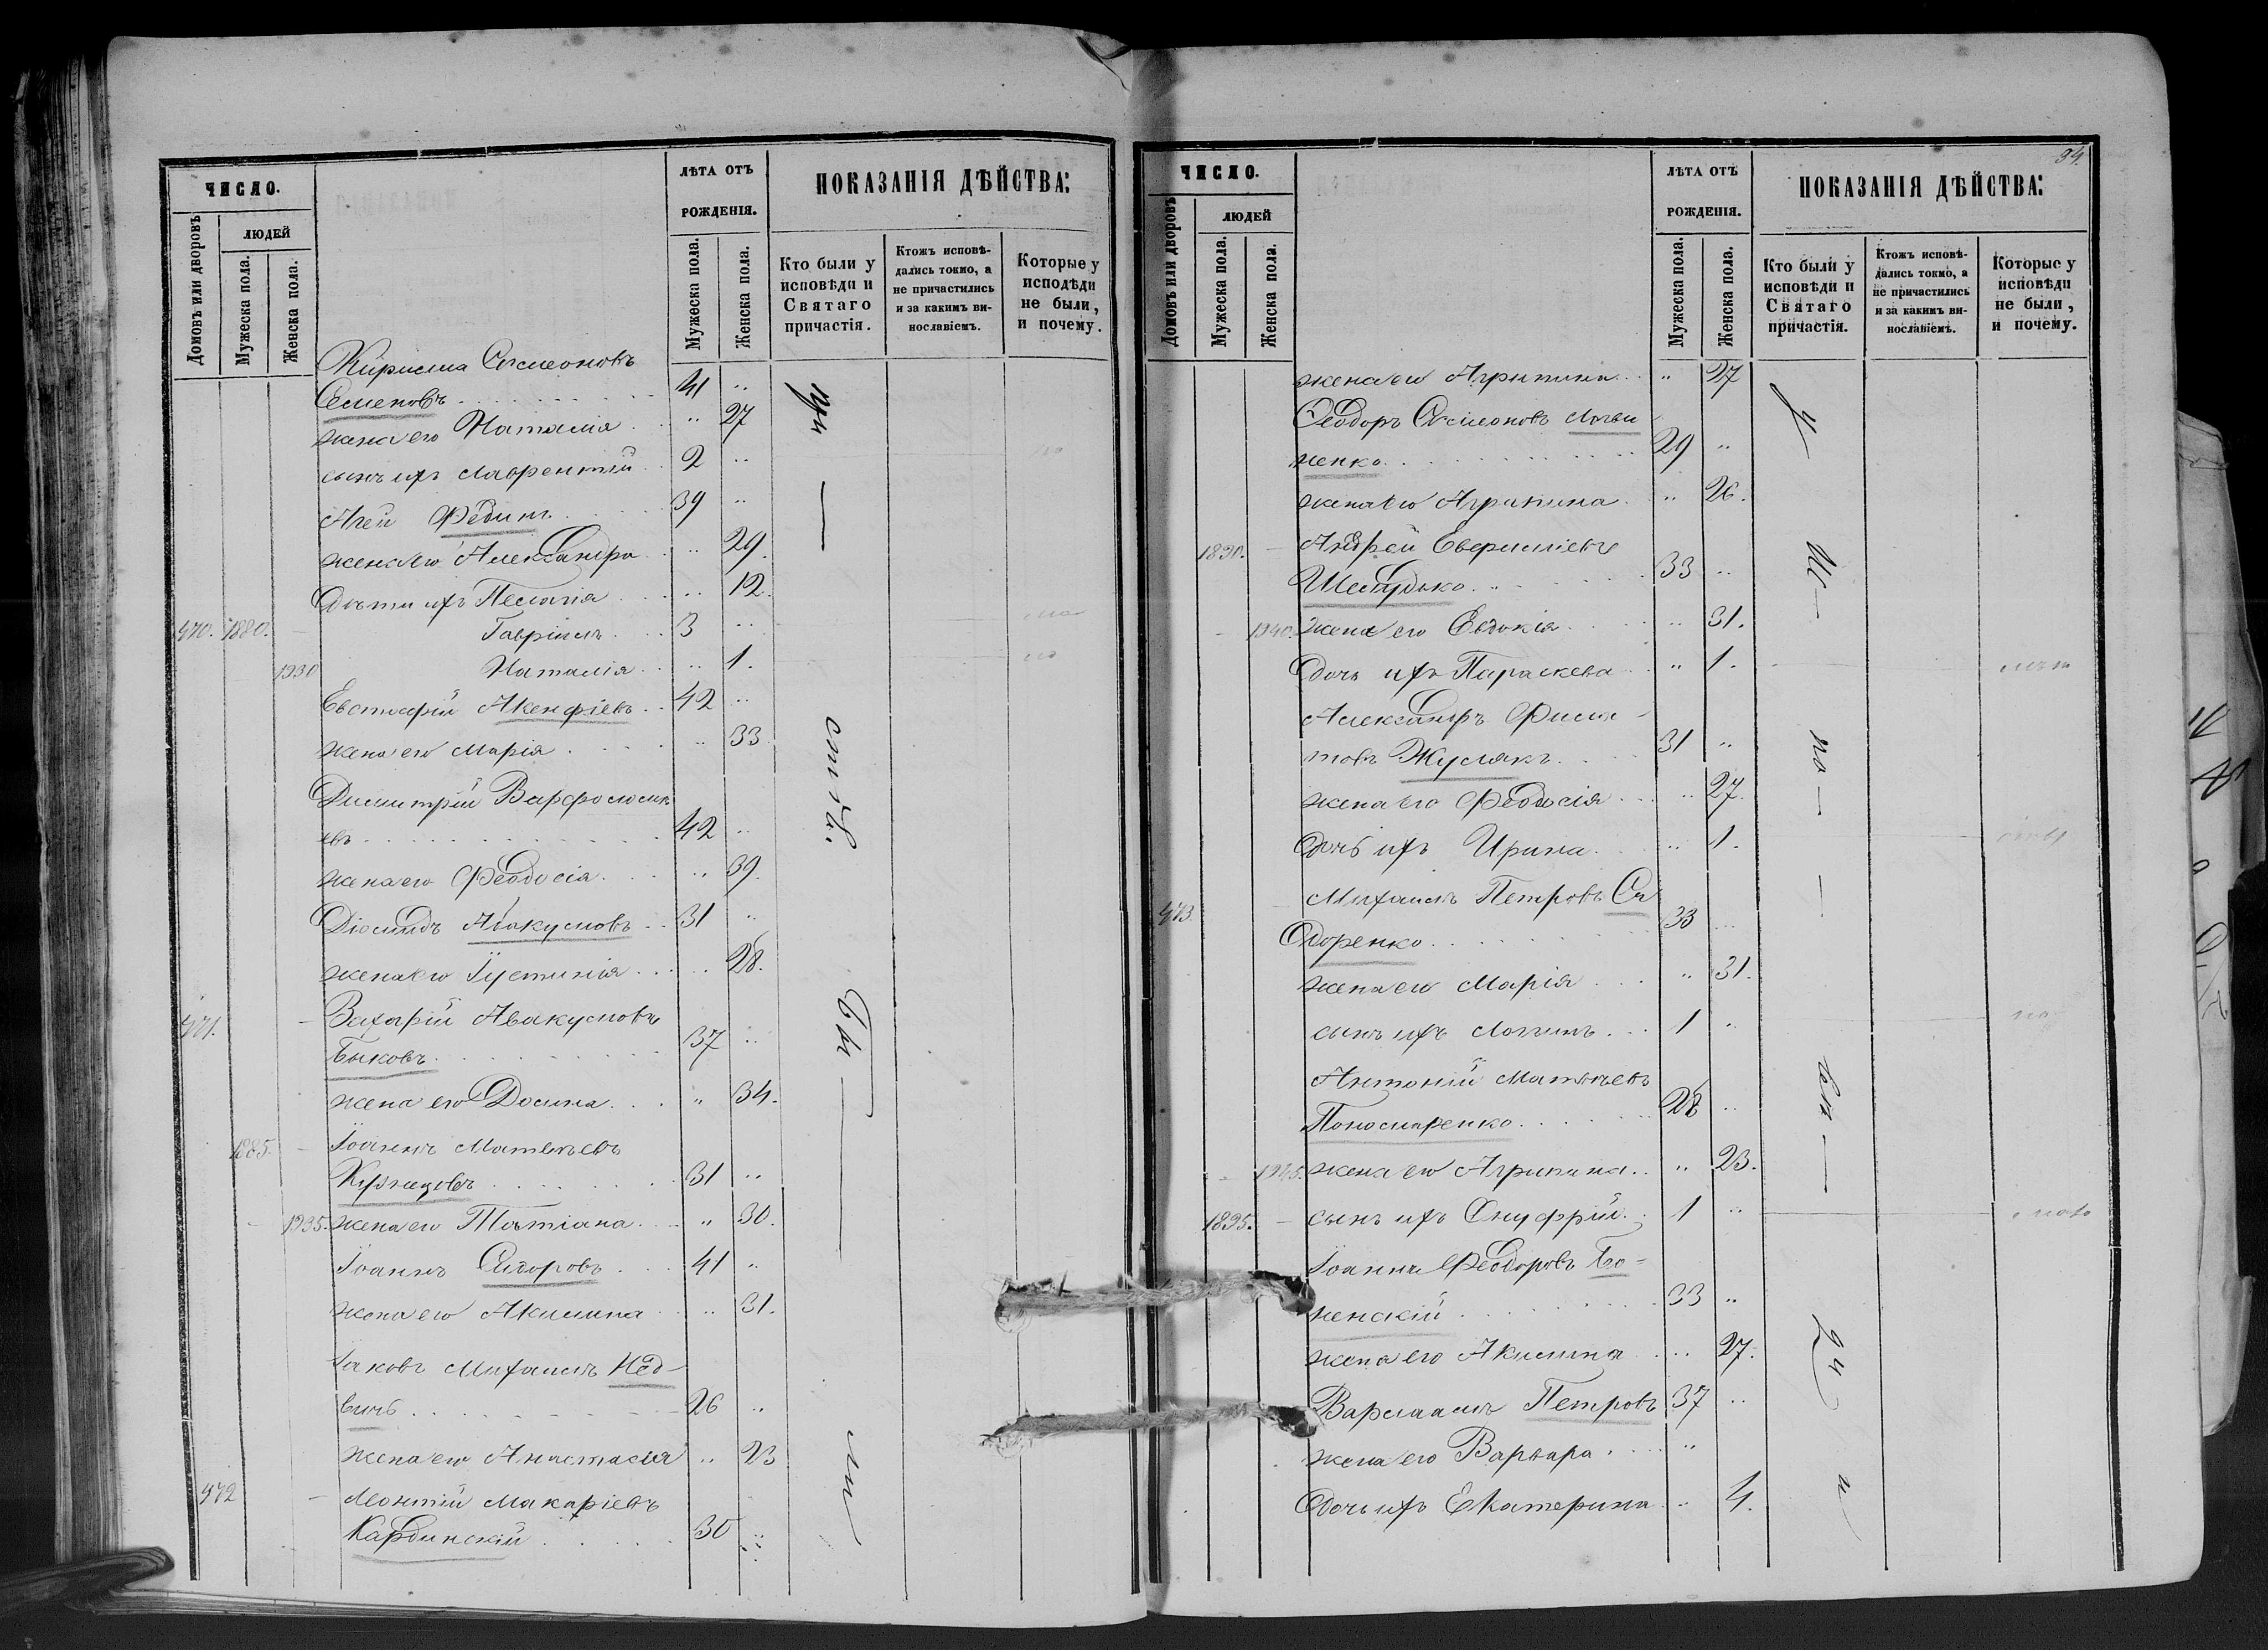 ЧИСЛО.
Домовъ или дворовъ
ЛЮДЕЙ
Мужеска пола.
Женска пола.
ЛѢТА ОТЪ
РОЖДЕНІЯ.
Мужеска пола.
Женска пола.
ПОКАЗАНІЯ ДѢЙСТВА:
Кто были у
исповѣди и
Святаго
причастія.
Ктожъ исповѣ-
дались токмо, а
не причастились
и за какимъ ви-
нославіемъ.
Которые у
исподѣди
не были,
и почему.
Кирилла Симеоновъ
Семеновъ 41
жена его Наталія 27
сынъ ихъ Лаврентій 2
Агей Фединъ 39
жена его Александра 29.
Дѣти ихъ Пелагія 12.
470. 1880. Гавріилъ 3
1930 Наталія 1.
Евстафій Акенфіевъ 42
жена его Марія 33
Димитрій Варфоломе
евъ 42
жена его Феодосія 39.
Діомидъ Авакумовъ 31
жена его Іустинія 28.
471. Захарій Авакумовъ
Быковъ 37
жена его Домна 34.
1885. Іоаннъ Матвѣевъ
Кузнецовъ 31
1935. жена его Татіана 30.
Іоаннъ Сидоровъ 41
жена его Акилина 31.
Іаковъ Михаилъ Нед-
26
жена его Анастасія 23
472 Леонтій Макаріевъ
Кардинскій 30
94.
ЧИСЛО.
Домовъ или дворовъ
ЛЮДЕЙ
Мужеска пола.
Женска пола.
ЛѢТА ОТЪ
РОЖДЕНІЯ.
Мужеска пола.
Женска пола.
ПОКАЗАНІЯ ДѢЙСТВА:
Кто были у
исповѣди и
Святаго
причастія.
Ктожъ исповѣ-
дались токмо, а
не причастились
и за какимъ ви-
нославіемъ.
Которые у
исповѣди
не были,
и почему.
жена его Агрипина 27
Ѳеодоръ Симеоновъ Логви
ненко 29
жена его Агрипина 26.
1890. Андрей
Шелудько 33
1940. жена его Евдокія 31.
дочь ихъ Параскева 1.
Александръ Филип
повъ Жулякъ 31
жена его Феодосія 27.
дочь ихъ Ирина 1.
473 Михаилъ Петровъ Си
доренко 33
жена его Марія 31.
сынъ ихъ Логинъ 1
Антоній Матвѣевъ
Пономаренко 28
1945. жена его Агрипина 23.
1895. сынъ ихъ Онуфрій 1
Іоаннъ Феодоровъ Бо-
женскій 33
жена его Акилина 27.
Варлаамъ Петровъ 37
жена его Варвара
дочь ихъ Екатерина 4.